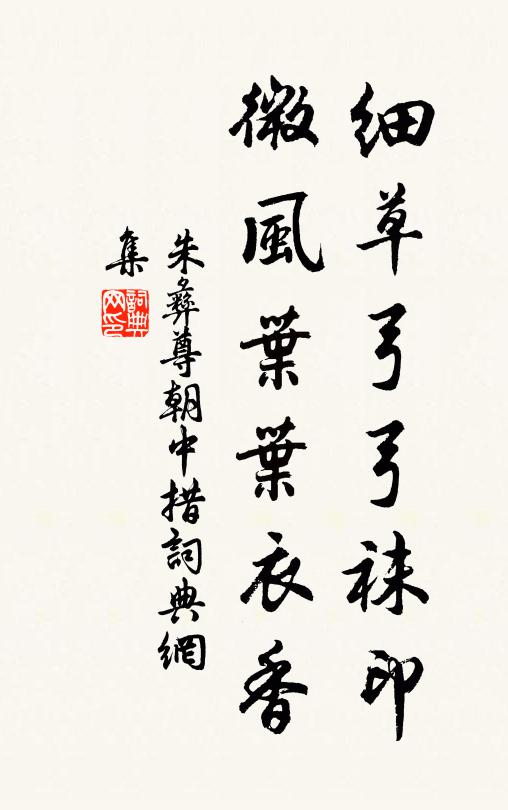 細草弓弓袜印
微風葉葉衣香
朱彝尊朝中措詞典網
集
詞典
网印